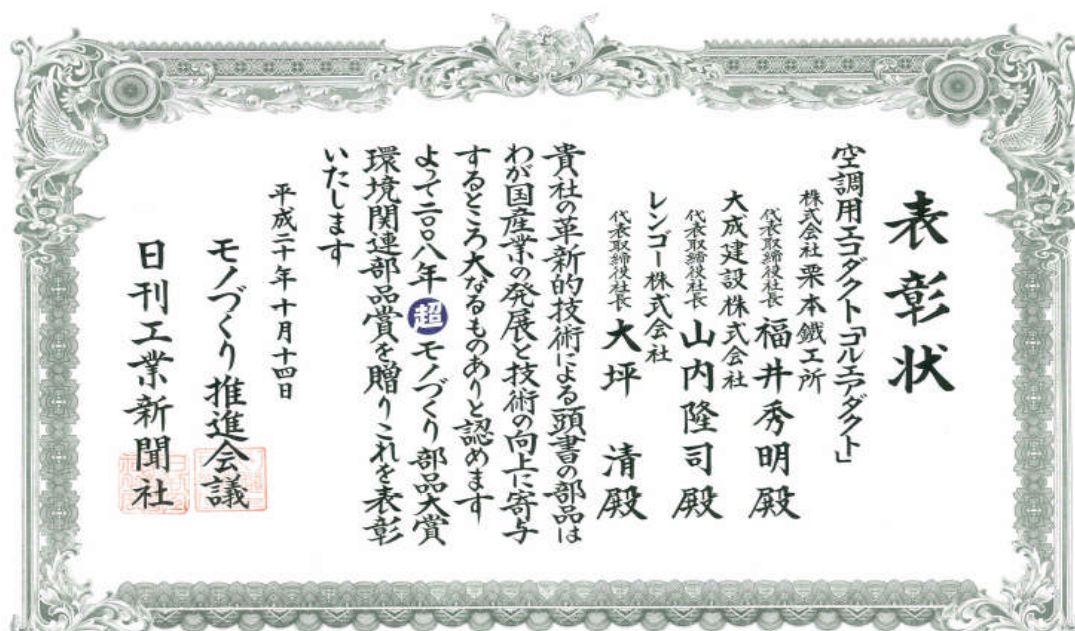 表彰状
空調用エコダクト「コルエアダクト」
株式会社 栗本鐵工所
代表取締役社長 福井秀明殿
大成建設株式会社
代表取締役社長 山内隆司殿
レンゴー株式会社
代表取締役社長 大坪 清殿
貴社の革新的技術による頭書の部品は
わが国産業の発展と技術の向上に寄与
するところ大なるものありと認めます
よって二〇〇八年超モノづくり部品大賞
環境関連部品賞を贈りこれを表彰
いたします
平成二十年十月十四日
モノづくり推進会議
日刊工業新聞社